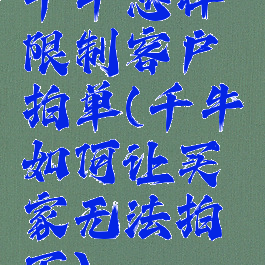 千牛怎样
限制客户
拍单(千牛
如何让买
家无法拍